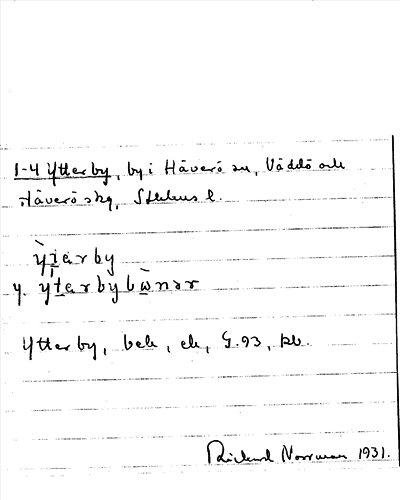 1-4 Ytterby, by i Häverö sn, Väddö och
Häverö skg, Sthlms l.
ỳtarby
y. ytarbybẁnər
Ytterby, beb, ek, G.93, kb.
Rickard Norrman 1931.